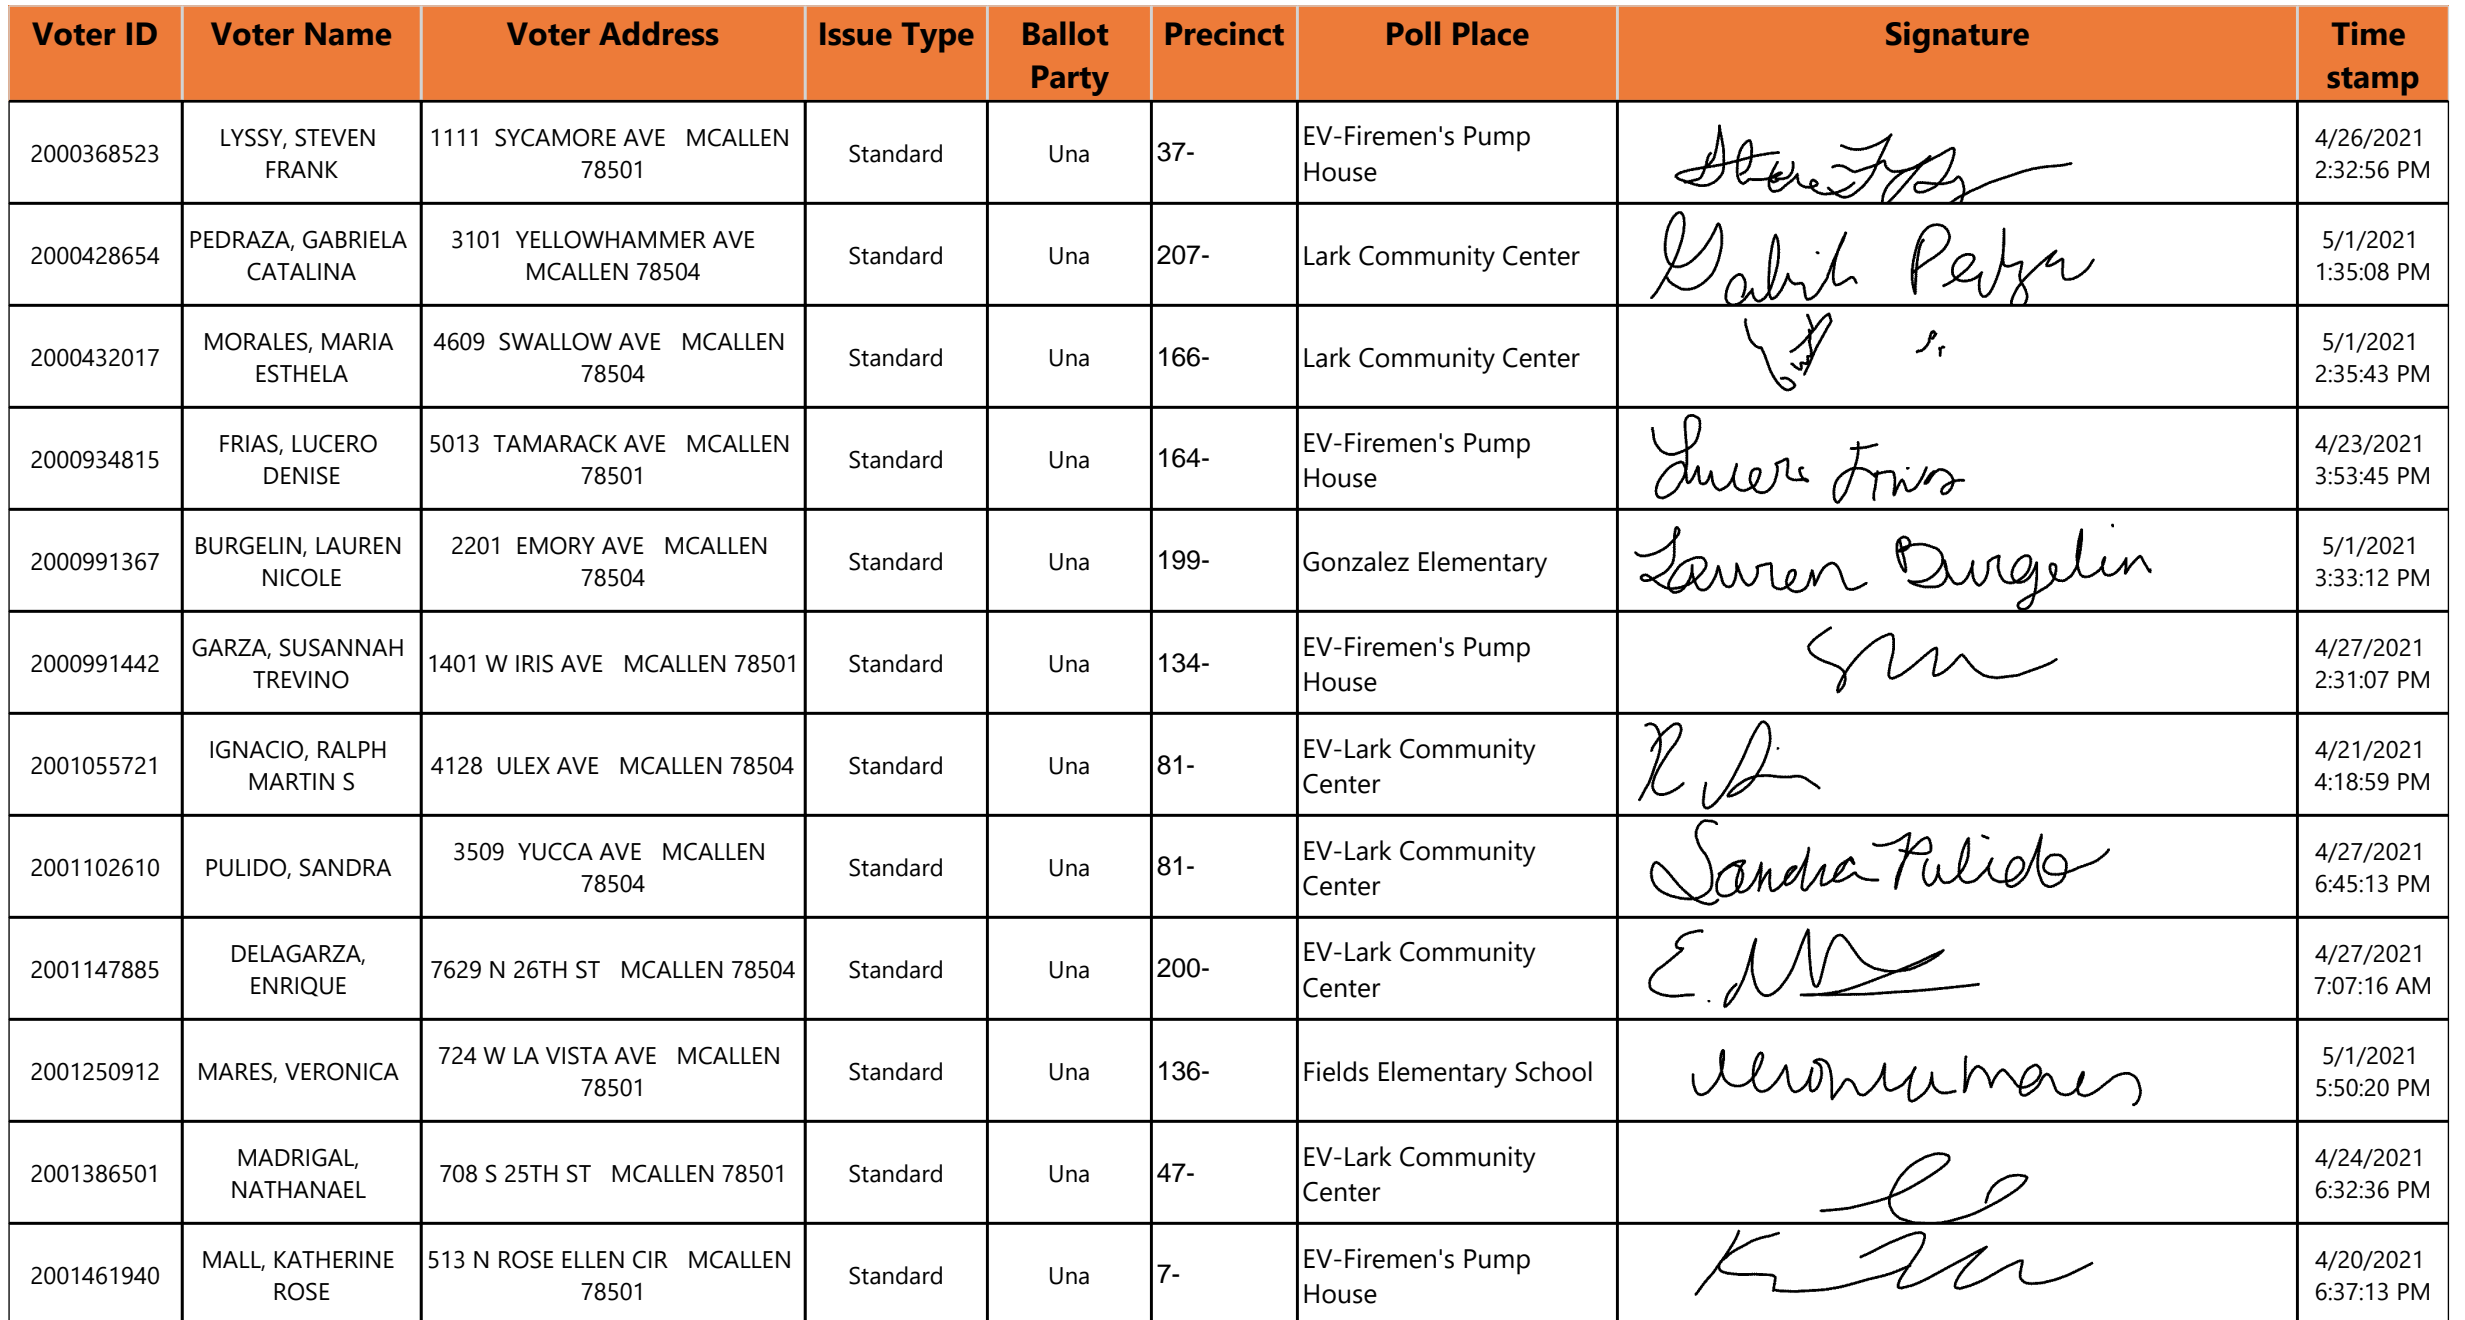 Voter ID Voter Name Voter Address Issue Type Ballot Party Precinct Poll Place Signature Time stamp
2000368523 LYSSY, STEVEN FRANK 1111 SYCAMORE AVE MCALLEN 78501 Standard Una 37- EV-Firemen's Pump House 4/26/2021 2:32:56 PM
2000428654 PEDRAZA, GABRIELA CATALINA 3101 YELLOWHAMMER AVE MCALLEN 78504 Standard Una 207- Lark Community Center 5/1/2021 1:35:08 PM
2000432017 MORALES, MARIA ESTHELA 4609 SWALLOW AVE MCALLEN 78504 Standard Una 166- Lark Community Center 5/1/2021 2:35:43 PM
2000934815 FRIAS, LUCERO DENISE 5013 TAMARACK AVE MCALLEN 78501 Standard Una 164- EV-Firemen's Pump House Lucero Frias 4/23/2021 3:53:45 PM
2000991367 BURGELIN, LAUREN NICOLE 2201 EMORY AVE MCALLEN 78504 Standard Una 199- Gonzalez Elementary Lauren Burgelin 5/1/2021 3:33:12 PM
2000991442 GARZA, SUSANNAH TREVINO 1401 W IRIS AVE MCALLEN 78501 Standard Una 134- EV-Firemen's Pump House 4/27/2021 2:31:07 PM
2001055721 IGNACIO, RALPH MARTIN S 4128 ULEX AVE MCALLEN 78504 Standard Una 81- EV-Lark Community Center 4/21/2021 4:18:59 PM
2001102610 PULIDO, SANDRA 3509 YUCCA AVE MCALLEN 78504 Standard Una 81- EV-Lark Community Center Sandra Pulido 4/27/2021 6:45:13 PM
2001147885 DELAGARZA, ENRIQUE 7629 N 26TH ST MCALLEN 78504 Standard Una 200- EV-Lark Community Center 4/27/2021 7:07:16 AM
2001250912 MARES, VERONICA 724 W LA VISTA AVE MCALLEN 78501 Standard Una 136- Fields Elementary School Veronica Mares 5/1/2021 5:50:20 PM
2001386501 MADRIGAL, NATHANAEL 708 S 25TH ST MCALLEN 78501 Standard Una 47- EV-Lark Community Center 4/24/2021 6:32:36 PM
2001461940 MALL, KATHERINE ROSE 513 N ROSE ELLEN CIR MCALLEN 78501 Standard Una 7- EV-Firemen's Pump House 4/20/2021 6:37:13 PM